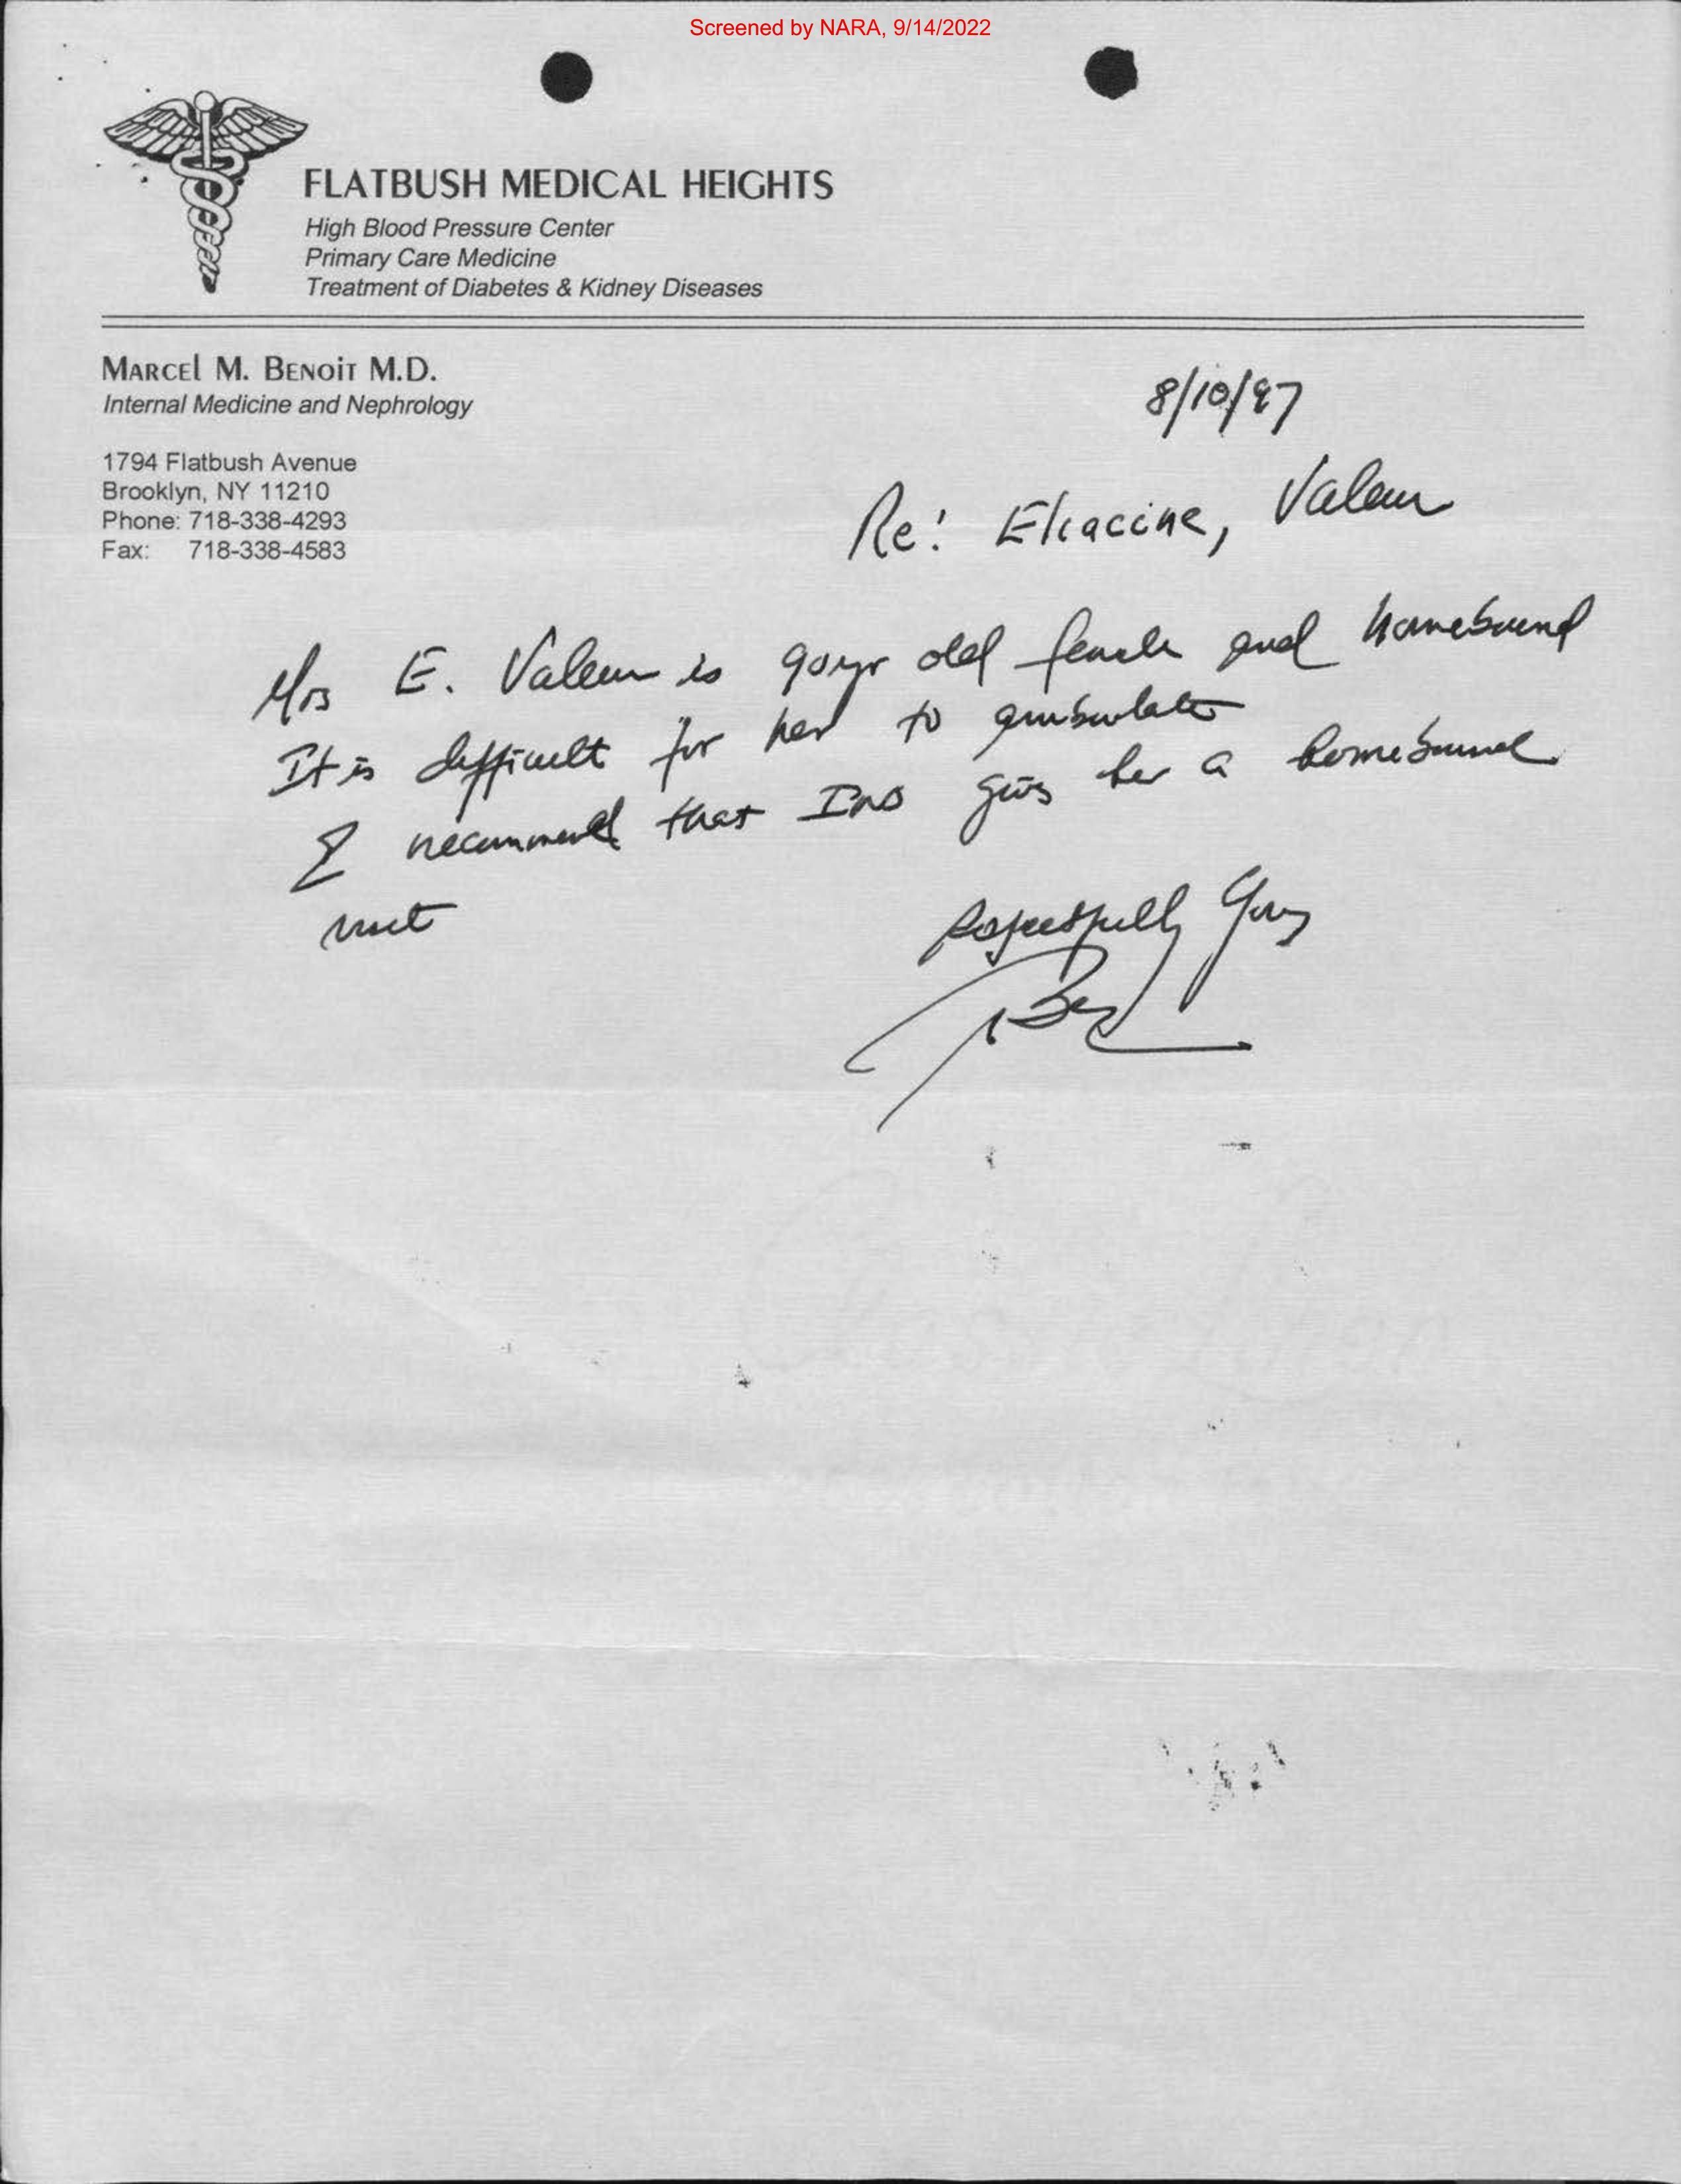 Screened by NARA, 9/14/2022
FLATBUSH MEDICAL HEIGHTS
High Blood Pressure Center
Primary Care Medicine
Treatment of Diabetes & Kidney Diseases
MARCEL M. BENOIT M.D.
Internal Medicine and Nephrology
1794 Flatbush Avenue
Brooklyn, NY 11210
Phone: 718-338-4293
Fax: 718-338-4583
8/10/97
Re: Eliacine, Valeur
Mrs E. Valeur is 90yr old female and homebound
It is difficult for her to ambulate
I recommend that INS give her a homebound
visit
Respectfully yours